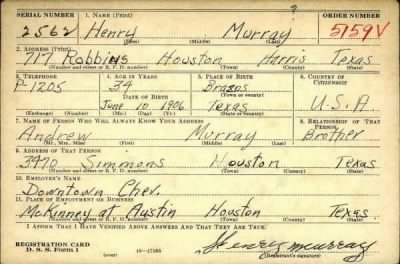 SERIAL NUMBER 1. NAME (Print) ORDER NUMBER
2562 Henry Murray 5159V
(First) (Middle) (Last)
2. ADDRESS (Print)
717 Robbins Houston Harris Texas
(Number and street or R. F. D. number) (Town) (County) (State)
3. TELEPHONE 4. AGE IN YEARS 5. PLACE OF BIRTH 6. COUNTRY OF CITIZENSHIP
P-1205 34 Brazos
DATE OF BIRTH (Town or county)
June 10 1906 Texas U.S.A
(Exchange) (Number) (Mo.) (Day) (Yr.) (State or country)
7. NAME OF PERSON WHO WILL ALWAYS KNOW YOUR ADDRESS 8. RELATIONSHIP OF THAT PERSON
Andrew Murray Brother
(Mr., Mrs., Miss) (First) (Middle) (Last)
9. ADDRESS OF THAT PERSON
3470 Simmons Houston Texas
(Number and street or R. F. D. number) (Town) (County) (State)
10. EMPLOYER'S NAME
Downtown Chev.
11. PLACE OF EMPLOYMENT OR BUSINESS
McKinney at Austin Houston Texas
(Number and street or R. F. D. number) (Town) (County) (State)
I AFFIRM THAT I HAVE VERIFIED ABOVE ANSWERS AND THAT THEY ARE TRUE.
REGISTRATION CARD
D. S. S. Form 1 (over) 16-17105 Henry Murray
(Registrant's signature)